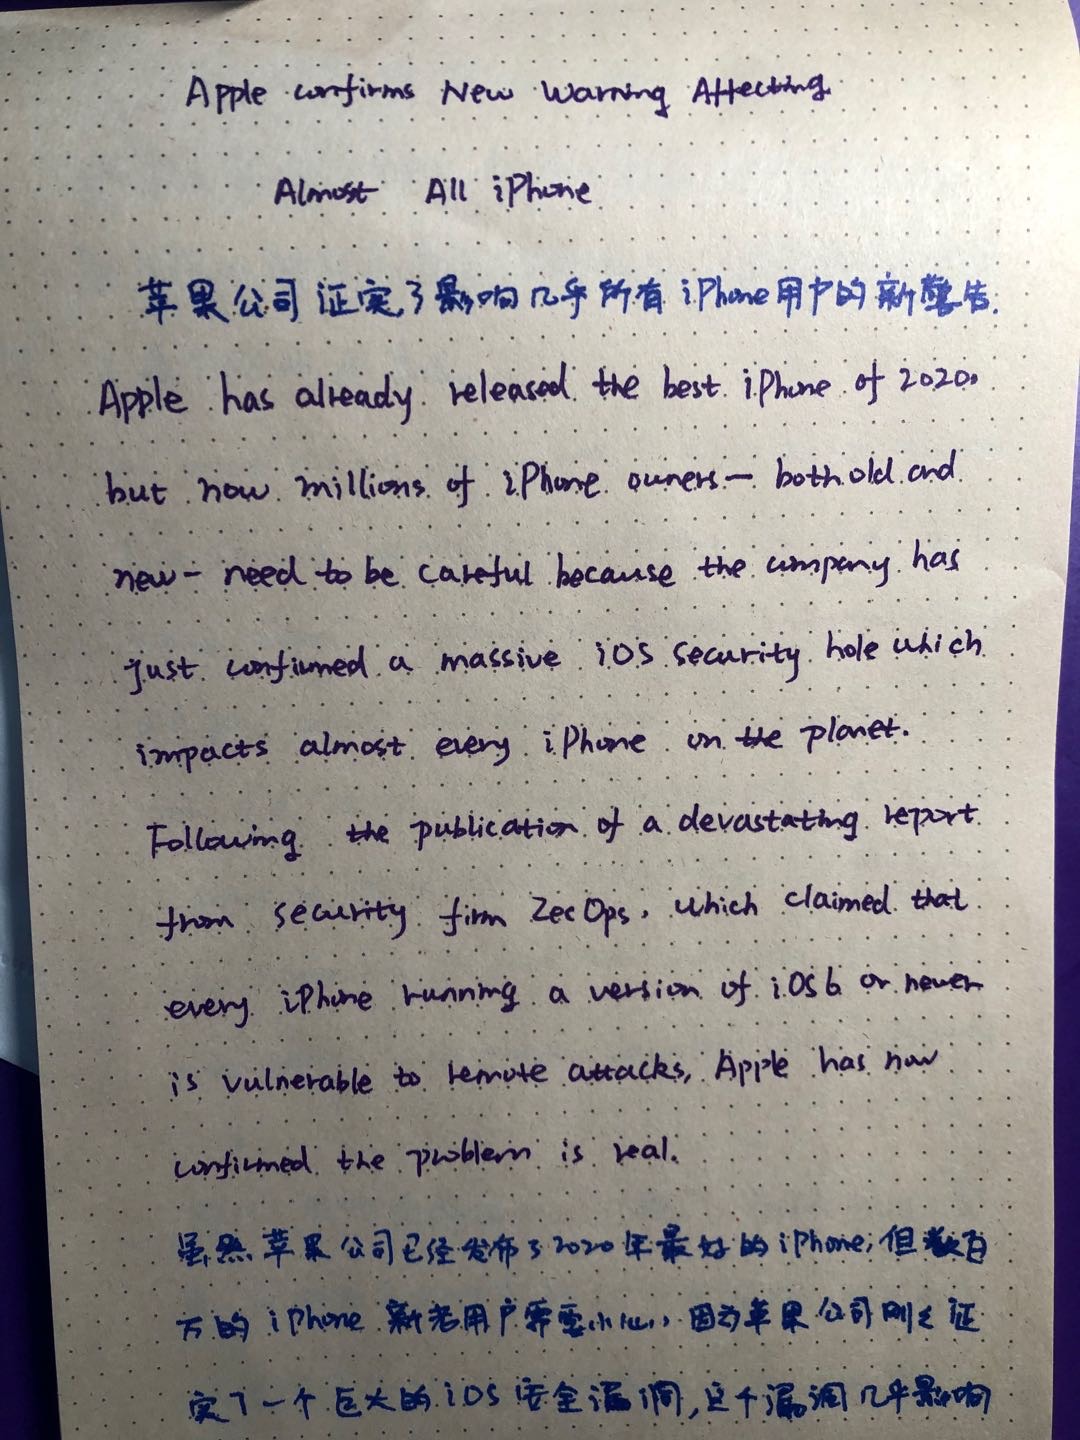 Apple confirms New Warning Affecting
Almost All iPhone
苹果公司证实了影响几乎所有iPhone用户的新警告.
Apple has already released the best iPhone of 2020,
but now millions of iPhone owners — both old and
new — need to be careful because the company has
just confirmed a massive iOS security hole which
impacts almost every iPhone on the planet.
Following the publication of a devastating report
from security firm ZecOps, which claimed that
every iPhone running a version of iOS6 or newer
is vulnerable to remote attacks, Apple has now
confirmed the problem is real.
虽然苹果公司已经发布了2020年最好的iPhone,但数百
万的iPhone新老用户需要小心,因为苹果公司刚刚证
实了一个巨大的iOS安全漏洞,这个漏洞几乎影响